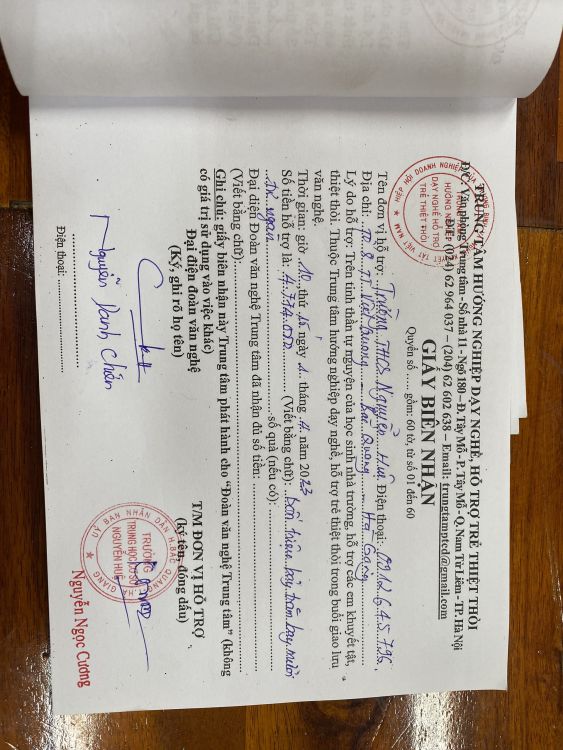 TRUNG TÂM HƯỚNG NGHIỆP DẠY NGHỀ, HỖ TRỢ TRẺ THIỆT THÒI
ĐC: Văn phòng Trung tâm - Số nhà 11 - Ngõ 180 – Đ. Tây Mỗ - P. Tây Mỗ - Q. Nam Từ Liêm - TP. Hà Nội
ĐT: (024) 62 964 037 – (204) 62 602 638 – Email: trungtamptcd@gmail.com
GIẤY BIÊN NHẬN
Quyển số ..... gồm: 60 tờ, từ số 01 đến 60
Tên đơn vị hỗ trợ: Trường THCS Nguyễn Huệ Điện thoại: 0912 645 796
Địa chỉ: TT Việt Quang - Bắc Quang - Hà Giang
Lý do hỗ trợ: Trên tinh thần tự nguyện của học sinh nhà trường, hỗ trợ các em khuyết tật,
thiệt thòi. Thuộc Trung tâm hướng nghiệp dạy nghề, hỗ trợ trẻ thiệt thòi trong buổi giao lưu
văn nghệ.
Thời gian: giờ 10, thứ ngày 1 tháng 4 năm 2023
Số tiền hỗ trợ là: 4.774.000 (Viết bằng chữ): bốn triệu bảy trăm bảy mươi
tư ngàn số quà (nếu có):
Đại diện Đoàn văn nghệ Trung tâm đã nhận đủ số tiền:
(Viết bằng chữ):
Ghi chú: giấy biên nhận này Trung tâm phát hành cho "Đoàn văn nghệ Trung tâm" (không
có giá trị sử dụng vào việc khác)
Đại diện đoàn văn nghệ
(Ký, ghi rõ họ tên)
Nguyễn Danh Chiến
Điện thoại:
T/M ĐƠN VỊ HỖ TRỢ
(ký tên, đóng dấu)
ỦY BAN NHÂN DÂN H. BẮC QUANG
HÀ GIANG
TRƯỜNG
TRUNG HỌC CƠ SỞ
NGUYỄN HUỆ
Nguyễn Ngọc Cương
HƯỚNG NGHIỆP
DẠY NGHỀ HỖ TRỢ
TRẺ THIỆT THÒI